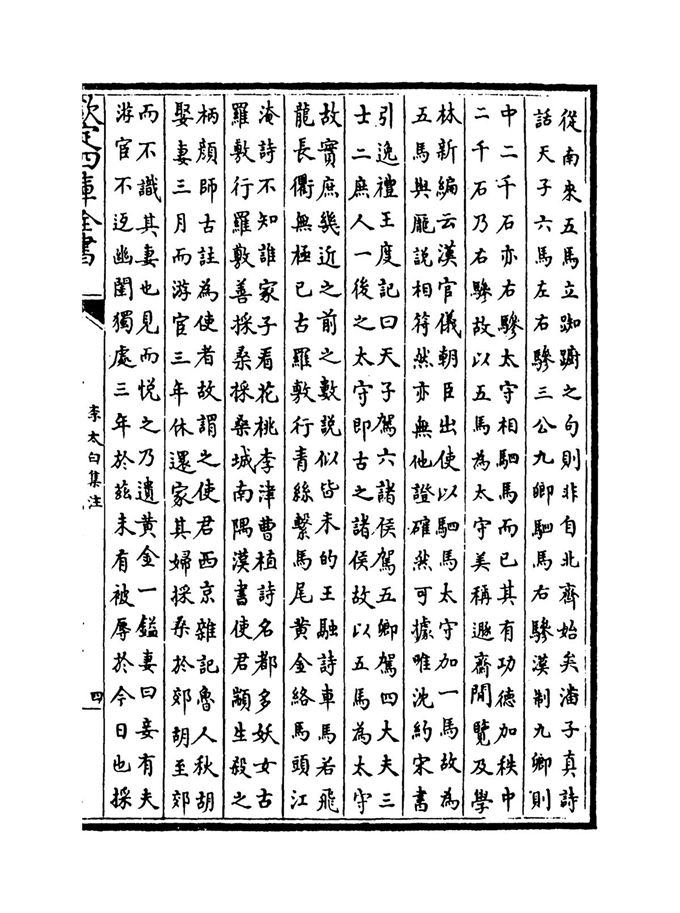 從南來五馬立踟躕之句則非自北齊始矣潘子真詩
話天子六馬左右驂三公九卿駟馬右驂漢制九卿則
中二千石亦右驂太守相駟馬而已其有功德加秩中
二千石乃右驂故以五馬為太守美稱遯齋閒覽及學
林新編云漢官儀朝臣出使以駟馬太守加一馬故為
五馬與龎說相符然亦無他證確然可據唯沈約宋書
引逸禮王度記曰天子駕六諸侯駕五卿駕四大夫三
士二庶人一後之太守即古之諸侯故以五馬為太守
故實庶幾近之前之數說似皆未的王融詩車馬若飛
龍長衢無極已古羅敷行青絲繫馬尾黃金絡馬頭江
淹詩不知誰家子看花桃李津曹植詩名都多妖女古
羅敷行羅敷善採桑採桑城南隅漢書使君顓生殺之
柄顏師古註為使者故謂之使君西京雜記魯人秋胡
娶妻三月而游宦三年休還家其婦採桑於郊胡至郊
而不識其妻也見而悅之乃遺黃金一鎰妻曰妾有夫
游宦不返幽閨獨處三年於茲未有被辱於今日也採
欽定四庫全書
李太白集注
四